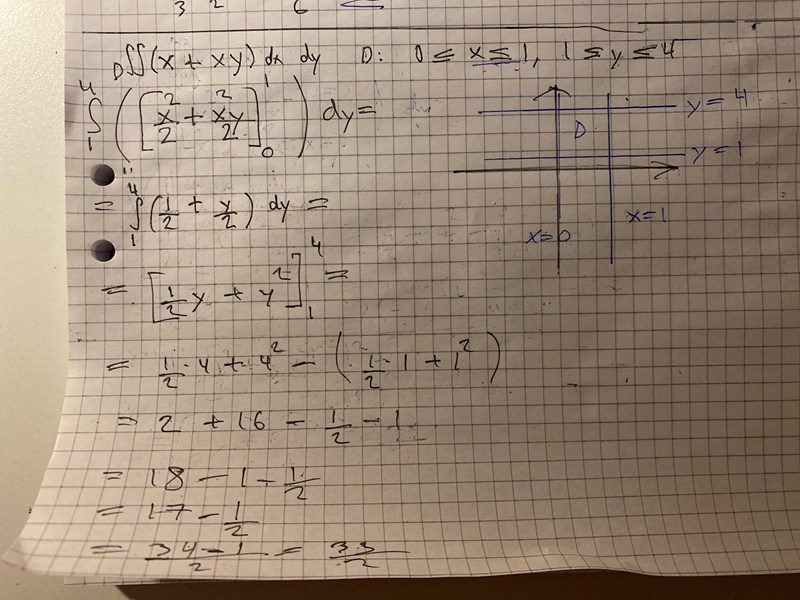 3 2 6
D∬(x + xy) dx dy D: 0 ≤ x ≤ 1, 1 ≤ y ≤ 4
∫₁⁴ ([x²/2 + x²y/2]₀¹) dy =
= ∫₁⁴ (1/2 + y/2) dy =
= [1/2 y + y²]₁⁴ =
= 1/2 · 4 + 4² − (1/2 · 1 + 1²)
= 2 + 16 − 1/2 − 1
= 18 − 1 − 1/2
= 17 − 1/2
= (34 − 1)/2 = 33/2
y = 4
D
y = 1
x = 1
x = 0